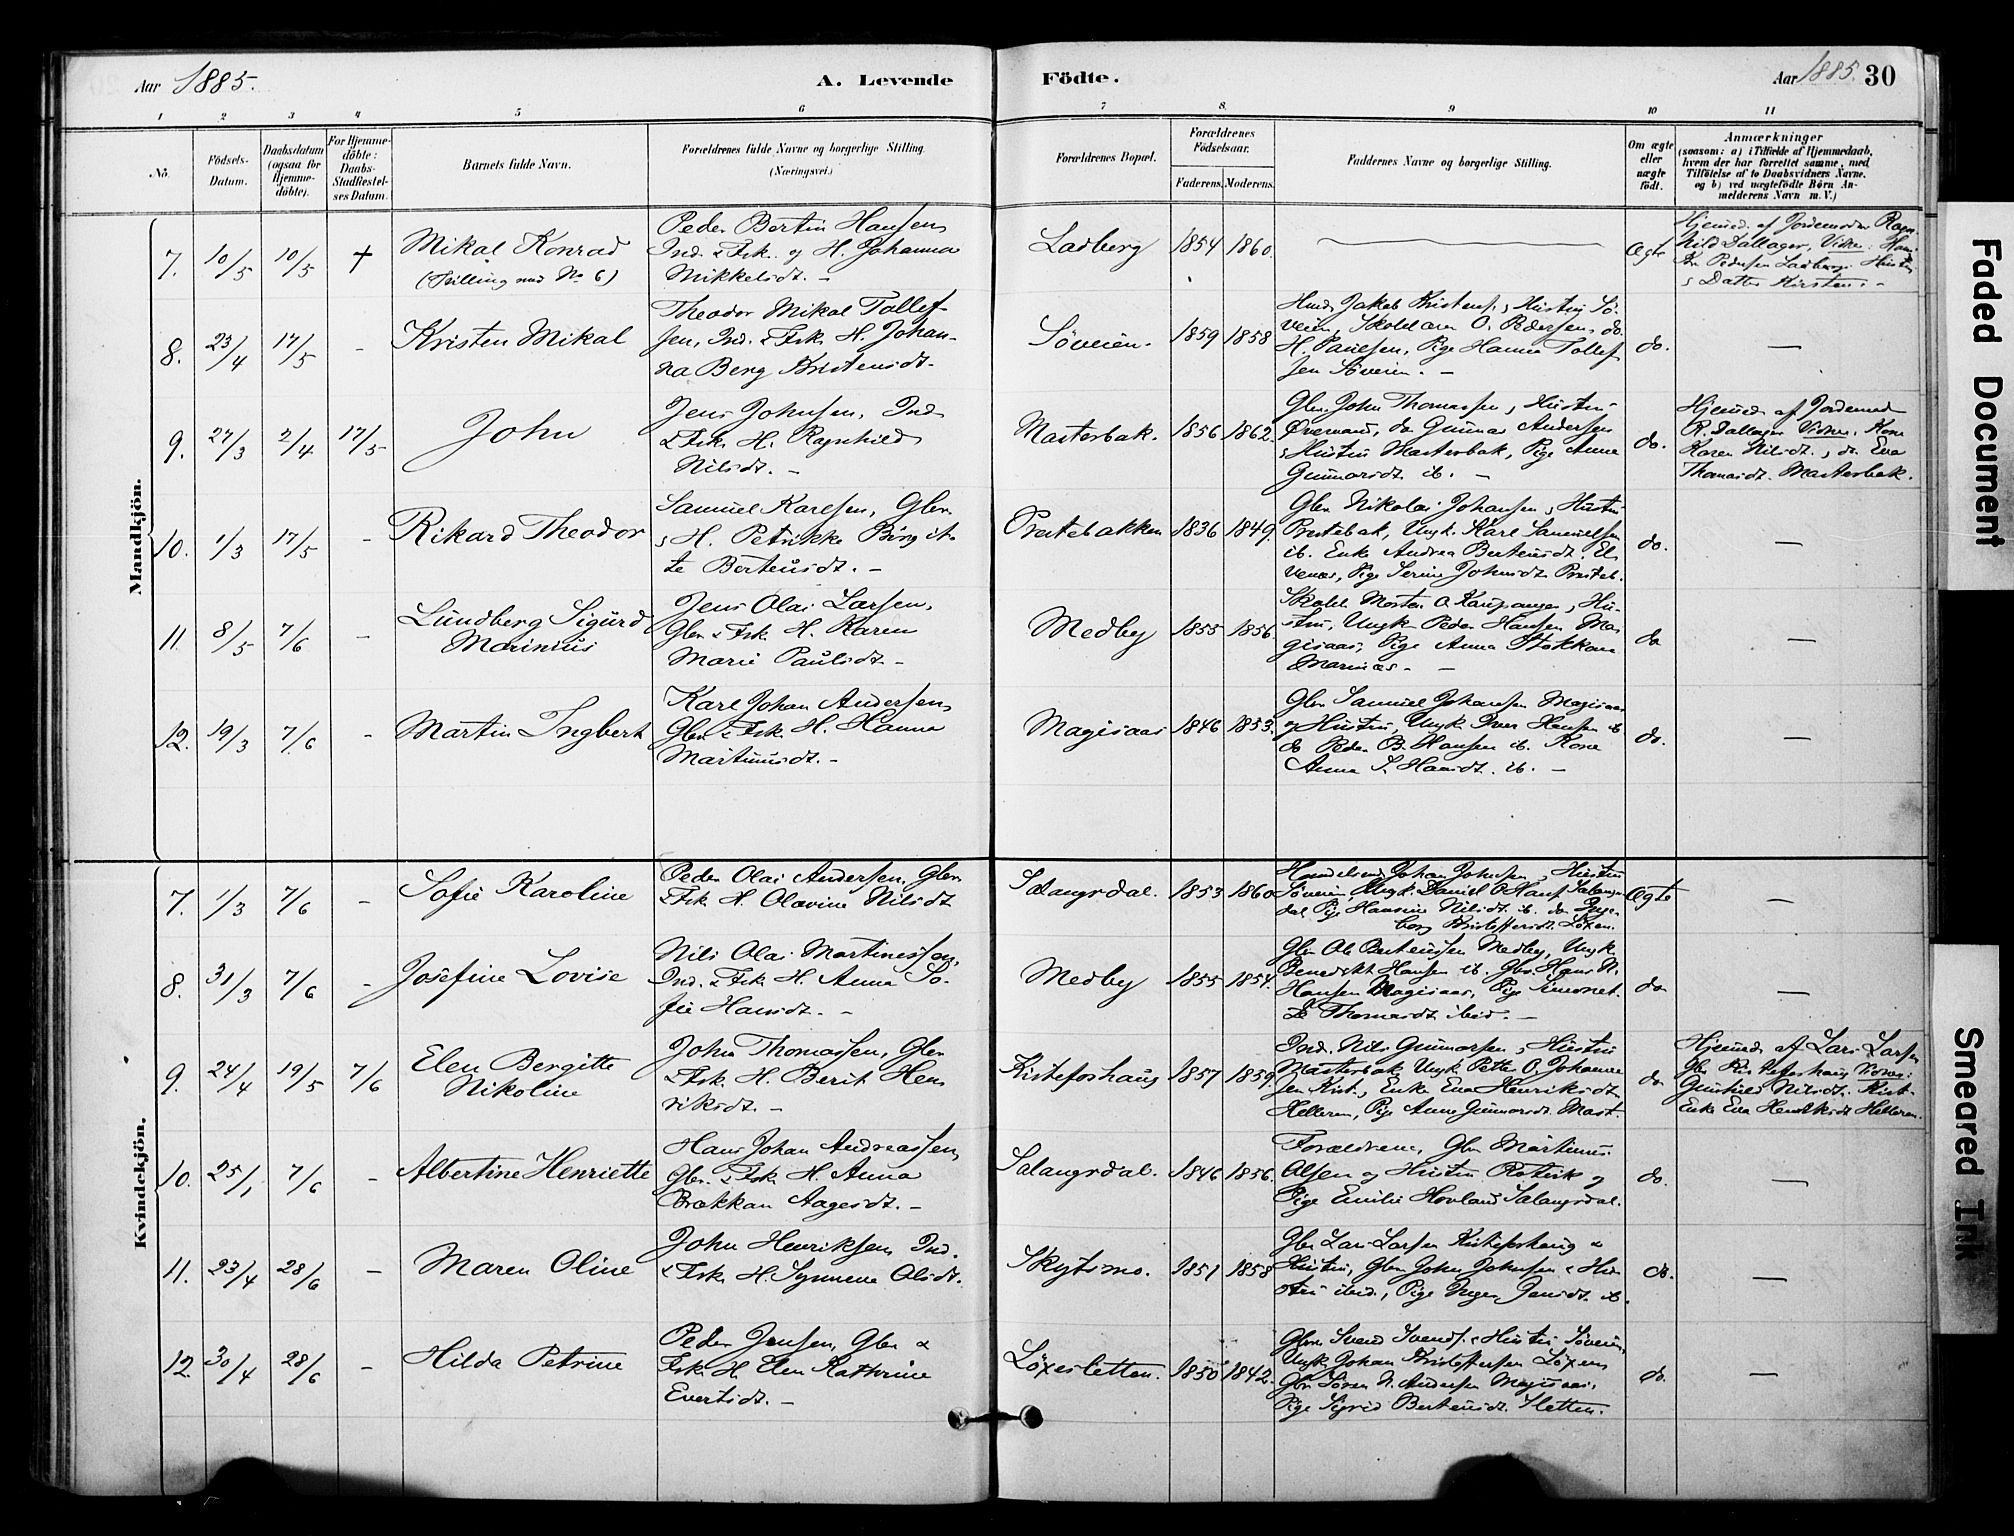 Aar 1885. A. Levende Födte. Aar 1885. 30
1 2 3 4 5 6 7 8. 9 10 11
No.
Födsels-
Datum.
Daabsdatum
(ogsaa for
Hjemme-
döbte).
For Hjemme-
döbte:
Daabs-
Stadfæstel-
ses Datum.
Barnets fulde Navn.
Forældrenes fulde Navne og borgerlige Stilling.
(Næringsvei.)
Forældrenes Bopæl.
Forældrenes
Födselsaar.
Faderens. Moderens.
Faddernes Navne og borgerlige Stilling.
Om ægte
eller
uægte
födt.
Anmærkninger
(saasom: a) i Tilfælde af Hjemmedaab,
hvem der har forrettet samme, med
Tilföielse af to Daabsvidners Navne.
og b) ved uægtefödte Börn An-
melderens Navn m. V.)
Mandkjön.
7. 10/5 10/5 +
Mikal Konrad
(Tvilling med No 6)
Peder Bertin Hansen,
Ind. & Fsk. og H. Johanna
Mikkelsdt. -
Ladberg 1854 1860. Ægte
Hjemmed. af Jordemoder Ragn-
hild Dallager, Vidner: Hans
Kr. Pedersen Ladberg, Hustru
& Datter Kirsten. -
8. 23/4 17/5 -
Kristen Mikal
Theodor Mikal Tollef-
sen, Ind. & Fsk. H. Johan-
na Berg Kristensdt.
Søveien. 1859 1858
Jakob Kristens. & Hustru Sø-
veien, Skolelærer O. Pedersen, do
H. Paulsen, Pige Hanna Tollef-
sen Søveien. -
do. —
9. 27/3 2/4 17/5
John
Jens Johnsen, Ind.
& Fsk. H. Ragnhild
Nilsdt. -
Masterbak. 1856 1862.
Gbr. John Thomassen & Hustru
do Gunnar Andersen
& Hustru Masterbak, Pige Anne
Gunnarsdt. ib. -
do.
Hjemmed. af Jordemod.
R. Dallager Vidner: Kone
Karen Nilsdt., do. Eva
Thomasdt. Masterbak.
10. 1/3 17/5 -
Rikard Theodor
Samuel Karlsen, Gbr.
& H. Petrikke Birgit-
te Berteusdt. -
Prestebakken 1836 1849.
Gbr. Nikolai Johansen & Hustru
Prestebak, Ungk. Karl Samuelsen
ib. Enke Andrea Berteusdt. El-
venes, Pige Serine Johnsdt. Presteb.
do. —
11. 8/5 7/6 -
Lundberg Sigurd
Marinius
Jens Olai Larsen,
Gbr. & Fsk. H. Karen
Marie Paulsdt. -
Medby 1855 1856.
Skolel. Morten O. Kaupangen, Hu-
stru, Ungk. Peder Hansen Ma-
gisaas, Pige Anna Stokkan
Marinæs. -
do —
12. 19/3 7/6 -
Martin Ingbert
Karl Johan Andersen,
Gbr. & Fsk. H. Hanna
Martinusdt. -
Magisaas 1846 1853.
Gbr. Samuel Johansen Magisaas
og Hustru, Ungk. Iver Hansen ib
do Peder B. Hansen ib. Kone
Anna S. Hansdt. ib. -
do. —
Kvindekjön.
7. 1/3 7/6 -
Sofie Karoline
Peder Olai Andersen, Gbr.
& Fsk. H. Olavine Nilsdt
Salangsdal. 1853 1860
Handelsmd. Johan Johnsen, Hustru
Søveien, Ungk. Daniel O. Hans. Salangs-
dal, Pige Hansine Nilsdt. ib. do Inge-
borg Kristoffersdt. Løxen.
Ægte —
8. 31/3 7/6 -
Josefine Lovise
Nils Olai Martinussen,
Ind. & Fsk. H. Anna So-
fie Hansdt. -
Medby 1855 1854.
Gbr. Ole Berteussen Medby, Ungk.
Benedikt Hansen ib. Gbr. Hans N.
Hansen Magisaas, Pige Simonet-
te Thomasdt. ibid. -
do —
9. 24/4 19/5 7/6
Elen Bergitte
Nikoline
John Thomassen, Gbr.
& Fsk. H. Berit Hen-
riksdt. -
Kistefoshaug 1857 1859.
Ind. Nils Gunnarsen & Hustru
Masterbak, Ungk. Petter O. Johanne-
sen Kist., Enke Eva Henriksdt.
Helleren, Pige Anne Gunnarsdt. Mast.
do
Hjemmed. af Lars Larsen
Gbr. Kistefoshaug Vidner:
Gunhild Nilsdt. Kist-
Enke Eva Henriksdt Helleren.
10. 25/1 7/6 -
Albertine Henriette
Hans Johan Andreassen,
Gbr. & Fsk. H. Anna
Brækkan Aagesdt. -
Salangsdal. 1846 1856.
Forældrene, Gbr. Martinus
Olsen og Hustru Rotvik og
Pige Emilie Hovland Salangsdal.
do. —
11. 23/4 28/6 -
Maren Oline
John Henriksen, Ind.
& Fsk. H. Synnene Olsdt.
Skytsmo. 1851 1858
Gbr. Lars Larsen Kistefoshaug &
Hustru, Gbr. John Johnsen & Hu-
stru ibid., Pige Inger Jensdt. ib.
do. —
12. 30/4 28/6 -
Hilda Petrine
Peder Jensen, Gbr. &
Fsk. H. Elen Kathrine
Evertsdt. -
Løxesletten. 1850 1842.
Gbr. Svend Svends. & Hustru Søveien,
Ungk. Johan Kristoffersen Løxen,
Gbr. Søren N. Andersen Magisaas,
Pige Sigrid Berteusdt. Sletten.
do. —
Faded Document
Smeared Ink